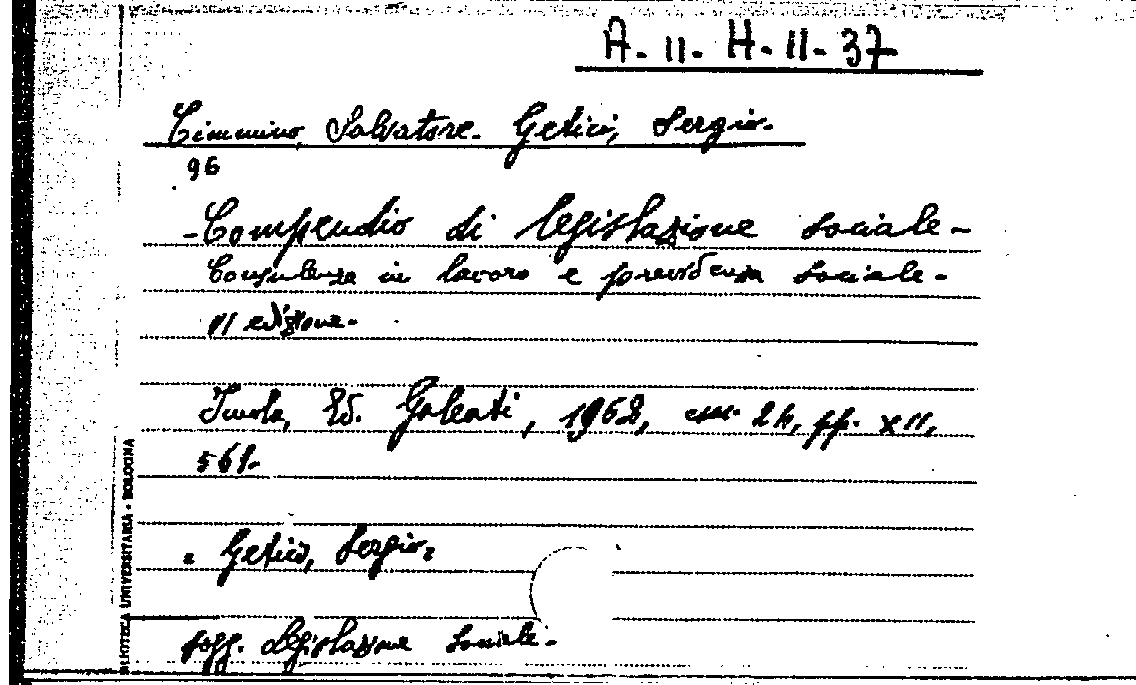 A-II-H-II-37
Cimmino, Salvatore. Getici, Sergio.
96
-Compendio di legislazione sociale-
Consulenza in lavoro e previdenza sociale-
II edizione-
Imola, Ed. Galeati, 1962, cm. 24, pp. XII,
561.
= Getici, Sergio=
sogg. Legislazione sociale-
BIBLIOTECA UNIVERSITARIA • BOLOGNA